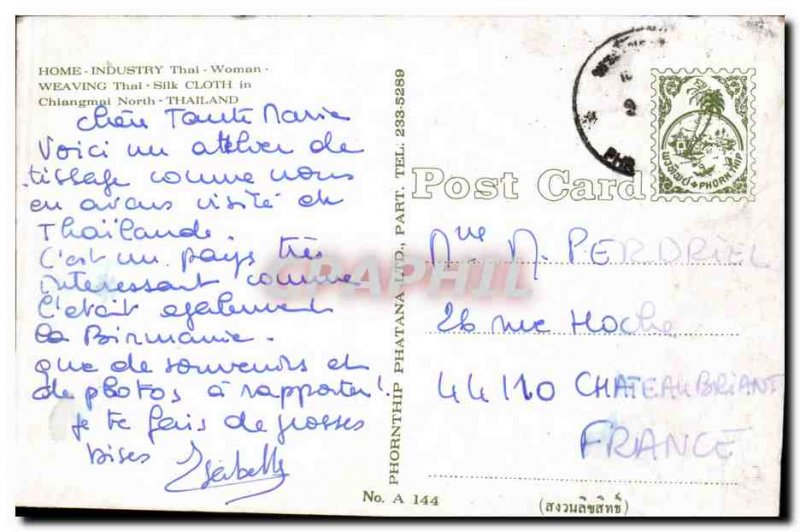 HOME - INDUSTRY Thai - Woman -
WEAVING Thai - Silk CLOTH in
Chiangmai North - THAILAND
chère Tante Marie
Voici un atelier de
tissage comme nous
en avons visité en
Thaïlande.
C'est un pays très
interessant comme
l'était egalement
la Birmanie.
que de souvenirs et
de photos à rapporter!
je te fais de grosses
bises Isabelle
PHORNTHIP PHATANA LTD., PART. TEL. 233-5289
No. A 144
Post Card
PHORNTHIP
Mme M. PERDRIEL
26 rue Hoche
44110 CHATEAUBRIANT
FRANCE
(สงวนลิขสิทธิ์)
CPAPHIL